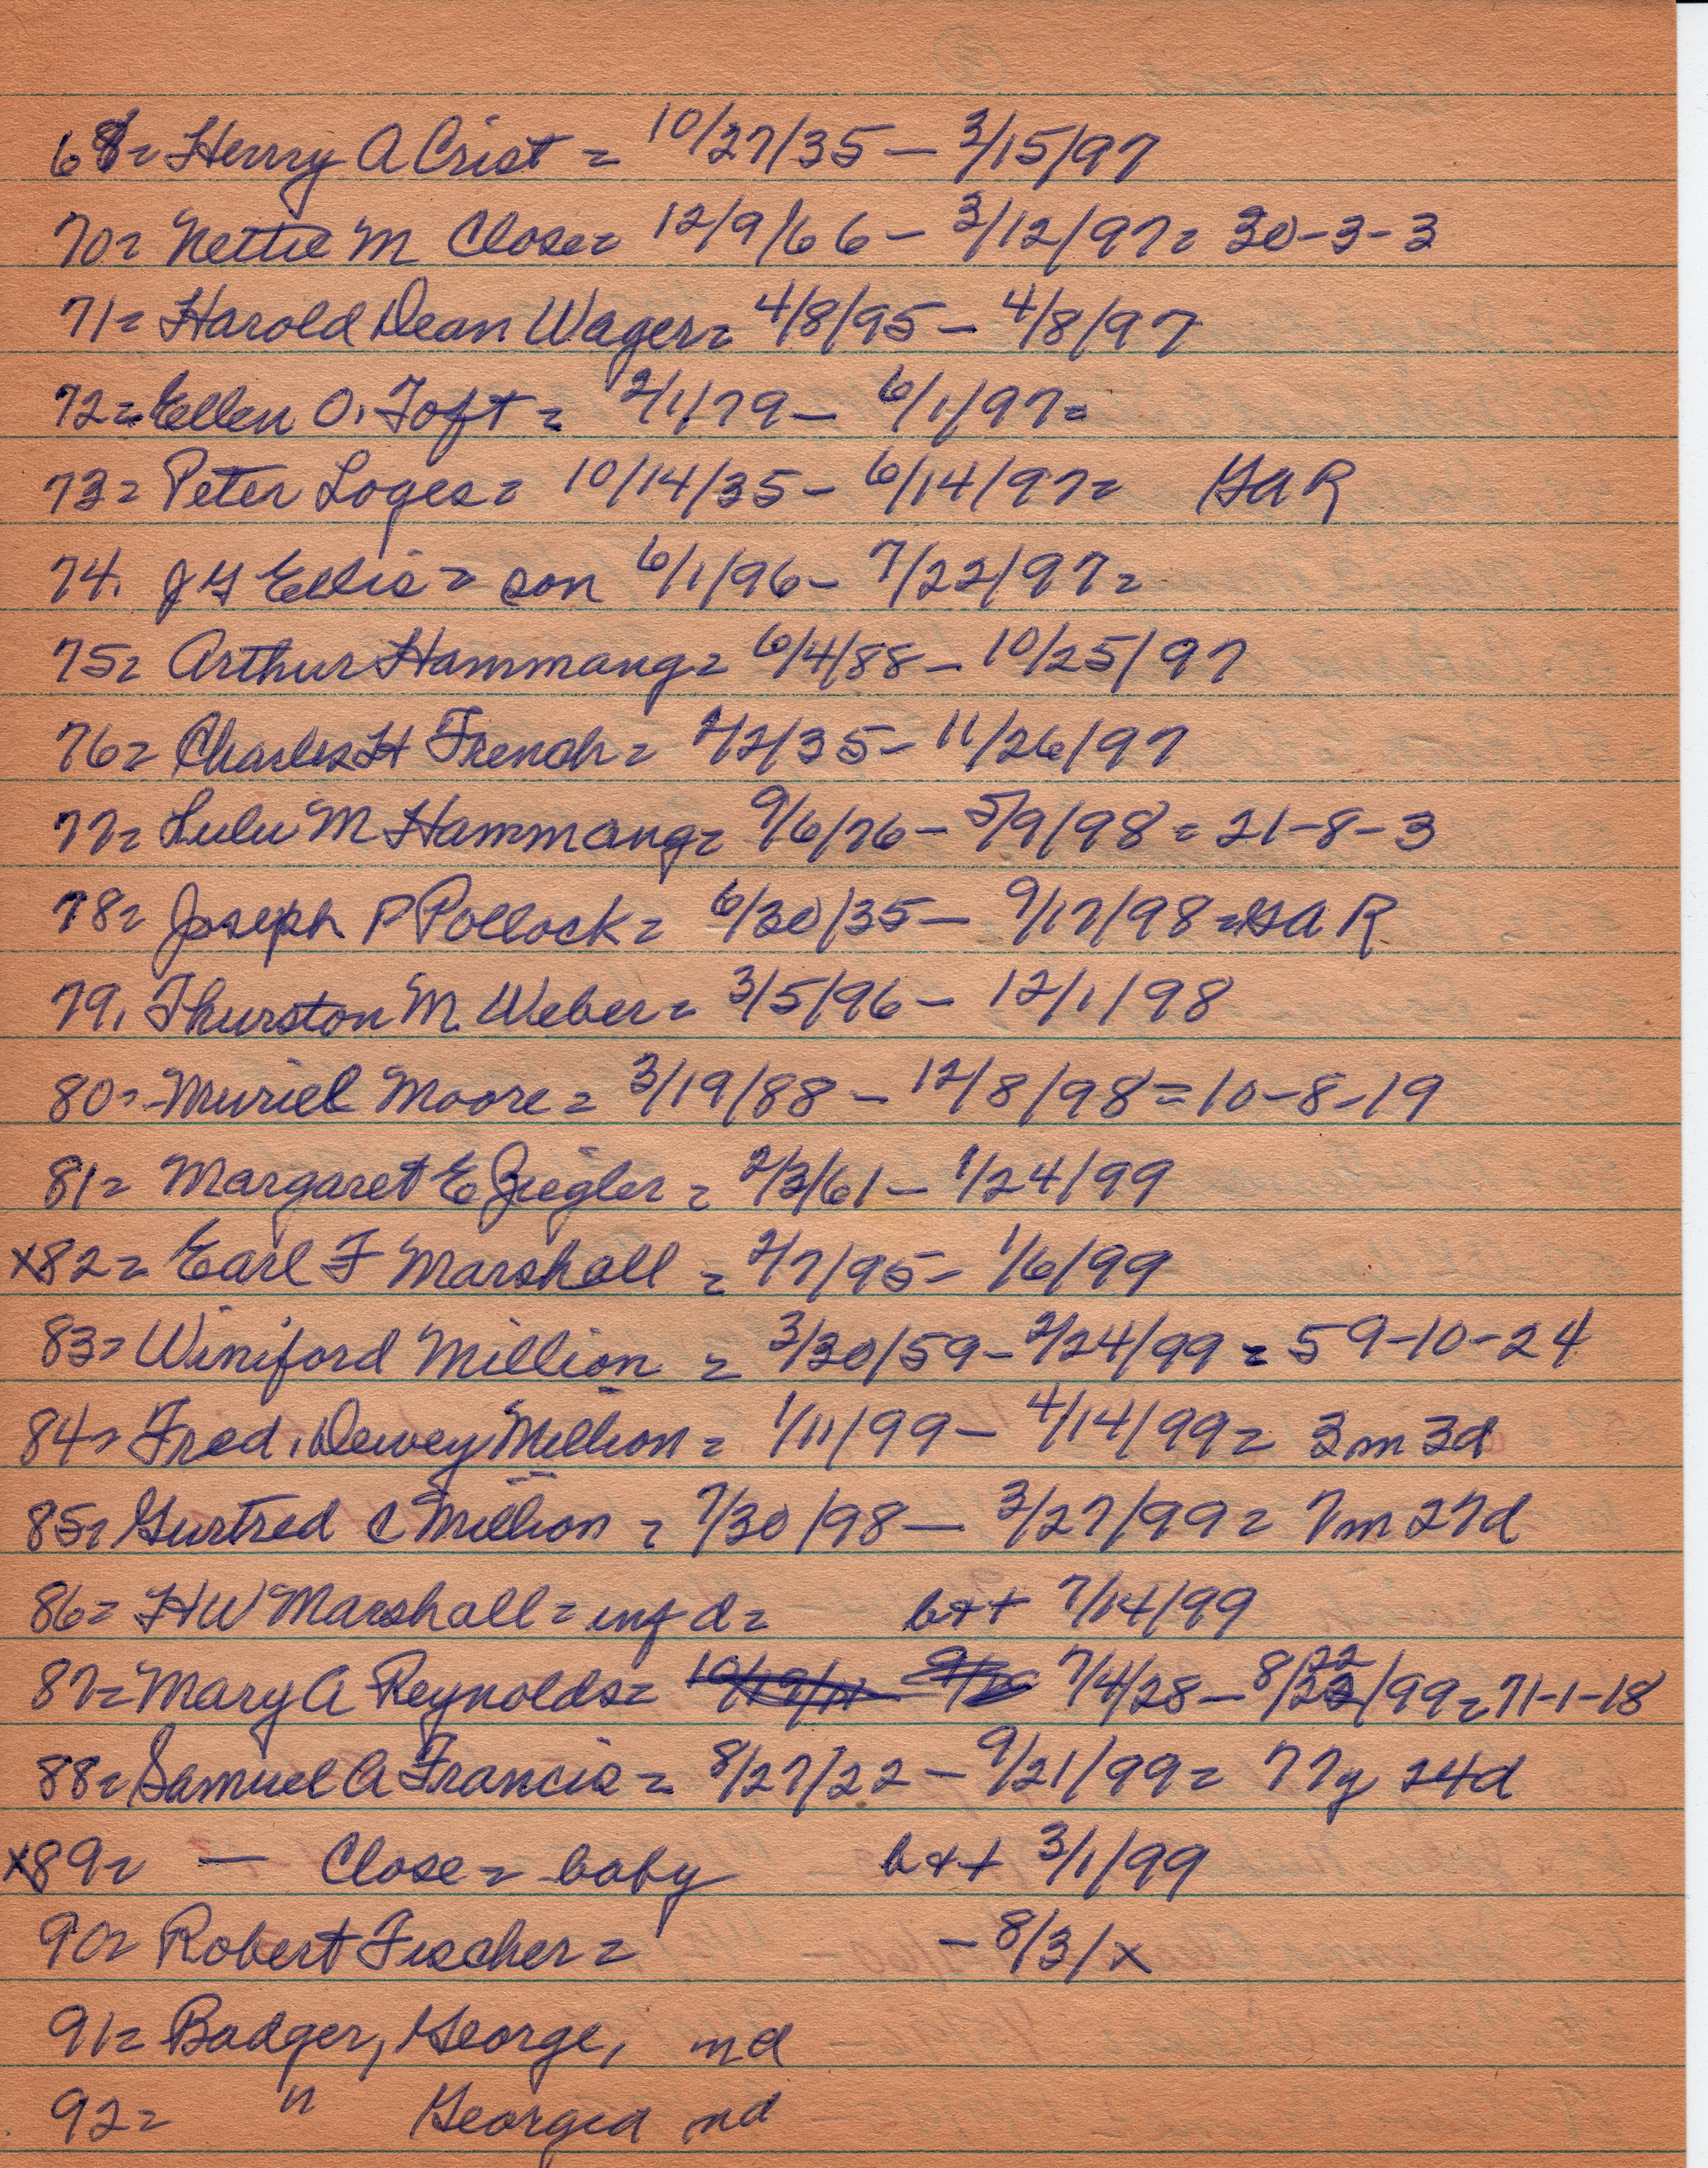 68= Henry A Crist = 10/27/35 - 3/15/97
70= Nettie M Close= 12/9/66 - 3/12/97= 30-3-3
71= Harold Dean Wager= 4/8/95 - 4/8/97
72= Ellen O. Toft = 2/1/79 - 6/1/97=
73= Peter Loges= 10/14/35 - 6/14/97= GAR
74. J G Ellis = son 6/1/96 - 7/22/97=
75= Arthur Hammang= 6/4/88 - 10/25/97
76= Charles H French= 2/2/35 - 11/26/97
77= Lulu M Hammang= 9/6/76 - 5/9/98 = 21-8-3
78= Joseph P Pollock= 6/30/35 - 9/17/98 = GAR
79. Thurston M. Weber= 3/5/96 - 12/1/98
80= Muriel Moore= 3/19/88 - 12/8/98 = 10-8-19
81= Margaret E Ziegler = 2/3/61 - 1/24/99
x82= Earl F Marshall = 2/7/95 - 1/6/99
83= Winiford Million = 3/30/59 - 2/24/99 = 59-10-24
84= Fred. Dewey Million= 1/11/99 - 4/14/99= 3m 3d
85= Gurtred C Million = 7/30/98 - 3/27/99= 7m 27d
86= HW Marshall= inf d= b++ 7/14/99
87= Mary A Reynolds= 7/4/28 - 8/22/99=71-1-18
88= Samuel A Francis= 8/27/22 - 9/21/99= 77y 24d
x89= — Close= baby b++ 3/1/99
90= Robert Fischer= - 8/3/x
91= Badger, George, nd -
92= " Georgia nd